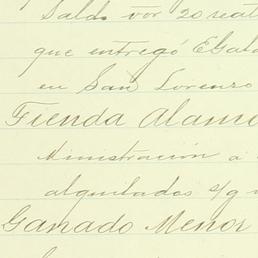 Saldo por 20 reat
que entregó El
en San Lorenzo
Tienda Alamo
ministracion a
alquilados s/g
Ganado Menor